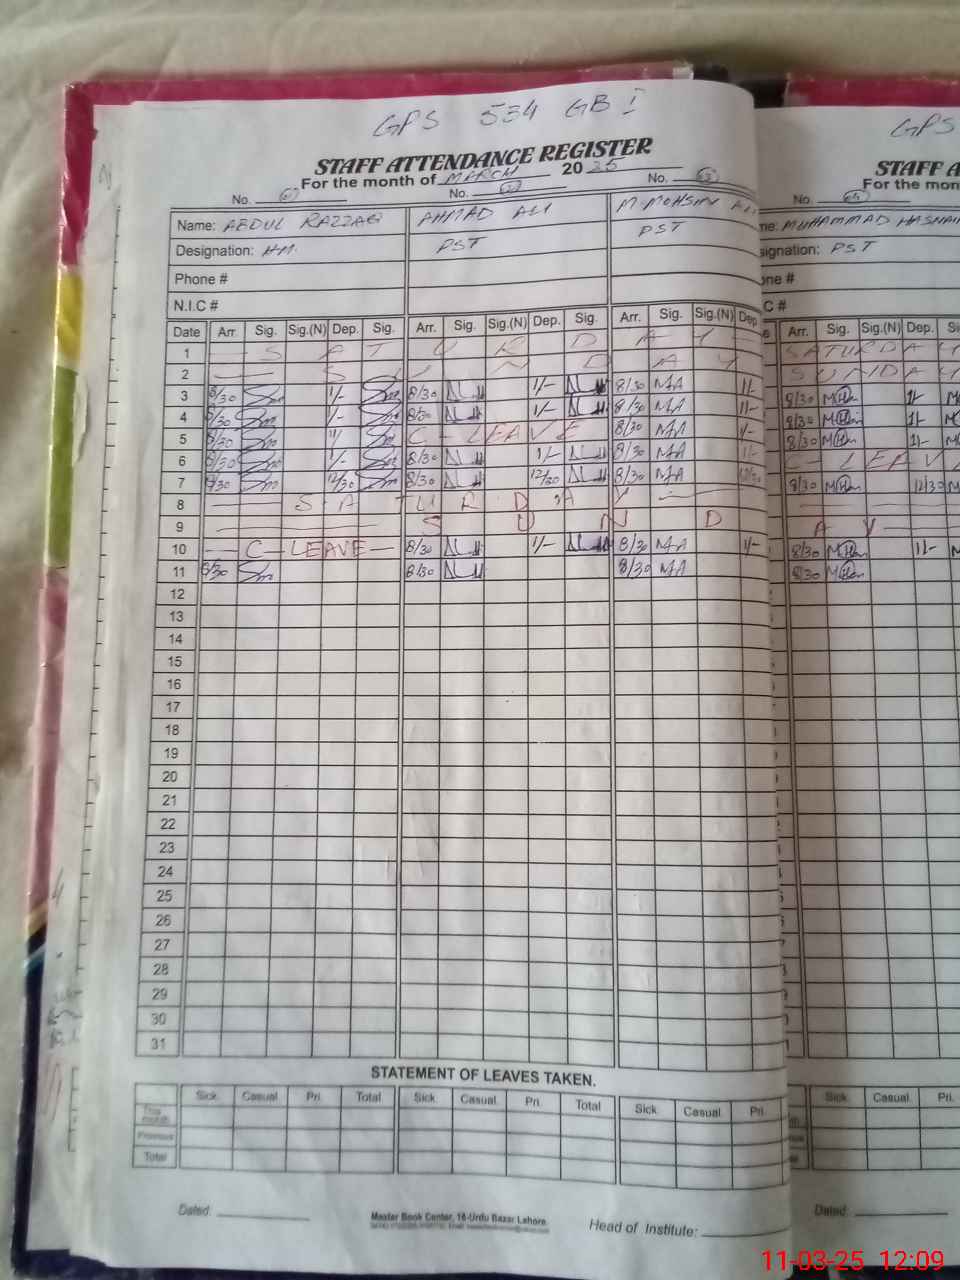 GPS 534 GB I
STAFF ATTENDANCE REGISTER
For the month of MARCH 2025
No. No. No.
Name: ABDUL RAZZAQ AHMAD ALI M. MOHSIN ALI
Designation: HM PST PST
Phone #
N.I.C #
Date Arr. Sig. Sig.(N) Dep. Sig. Arr. Sig. Sig.(N) Dep. Sig. Arr. Sig. Sig.(N) Dep
1 SATURDAY
2 SUNDAY
3 8/30 1/- 8/30 1/- 8/30 MA 1/-
4 8/30 1/- 8/30 1/- 8/30 MA 1/-
5 8/30 1/ C-LEAVE 8/30 MA 1/-
6 8/30 1/- 8/30 1/- 8/30 MA 1/-
7 8/30 12/30 8/30 12/30 8/30 MA 12/30
8 SATURDAY
9 SUND
10 C-LEAVE 8/30 1/- 8/30 MA 1/-
11 8/30 8/30 8/30 MA
12
13
14
15
16
17
18
19
20
21
22
23
24
25
26
27
28
29
30
31
STATEMENT OF LEAVES TAKEN.
Sick. Casual. Pri. Total Sick. Casual. Pri. Total Sick. Casual. Pri.
This month
Previous
Total
Dated:
Master Book Center, 16-Urdu Bazar Lahore.
Head of Institute:
GPS
STAFF A
For the mon
No.
me: MUHAMMAD HASNAI
signation: PST
one #
C #
Arr. Sig. Sig.(N) Dep. Si
SATURDAY
SUNDAY
8/30 1/-
8/30 1/-
8/30 1/-
C-LEAV
8/30 12/30
AY
8/30 1/-
8/30
Sick. Casual. Pri.
Dated:
11-03-25 12:09